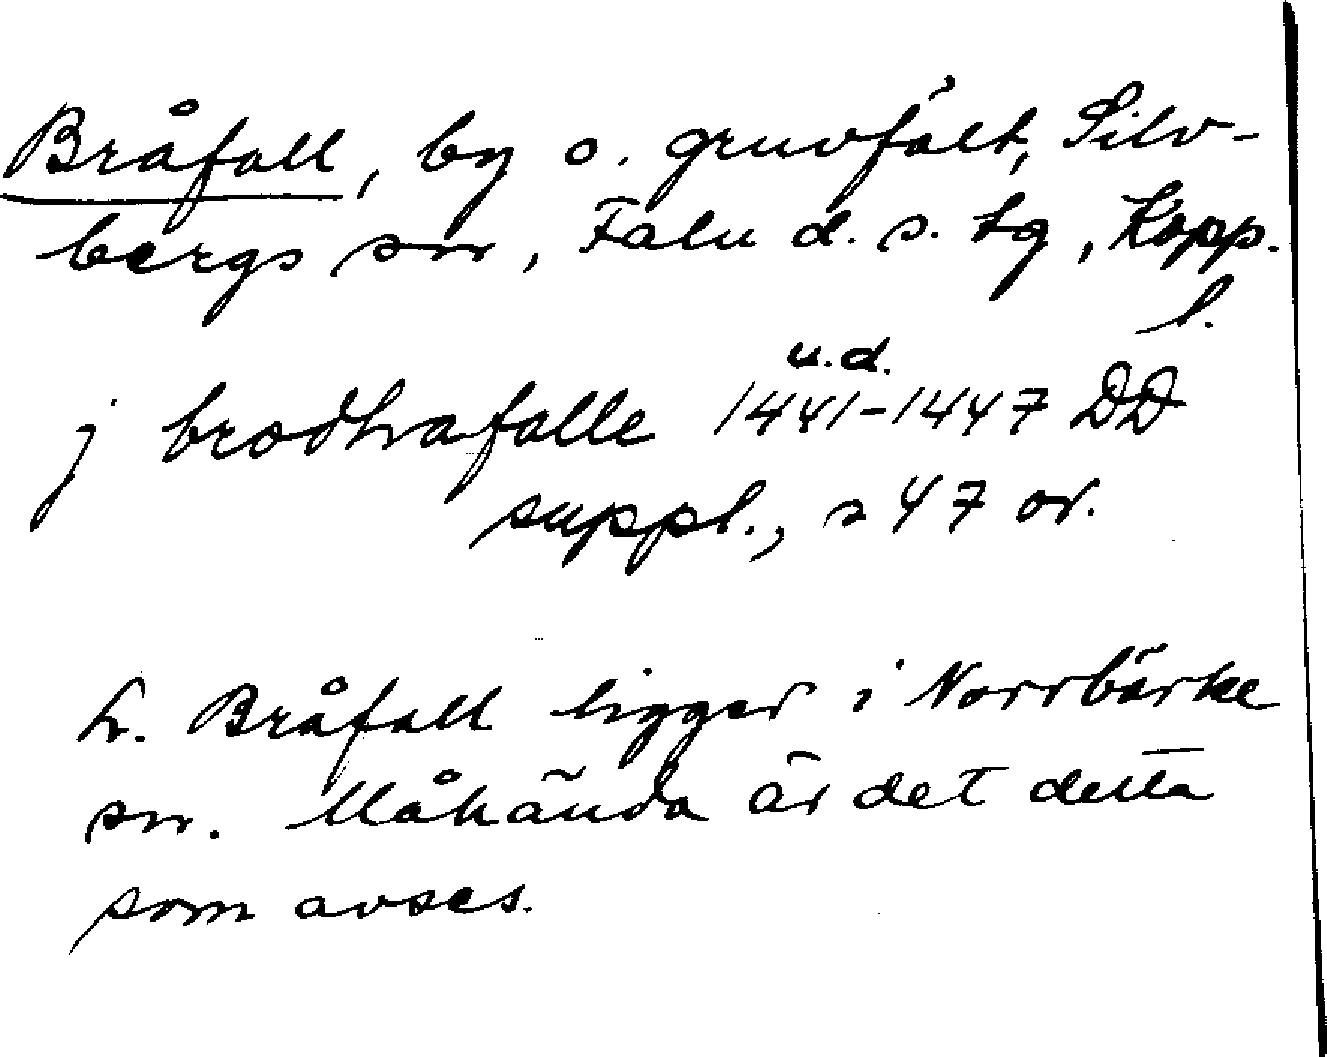 Bråfall, by o. gruvfält, Silv-
bergs sn, Falu d. s. tg, Kopp.
l.
u.d.
j brodhrafalle 1441-1447 DD
suppl., s 47 or.
L. Bråfall ligger i Norrbärke
sn. Måhända är det detta
som avses.